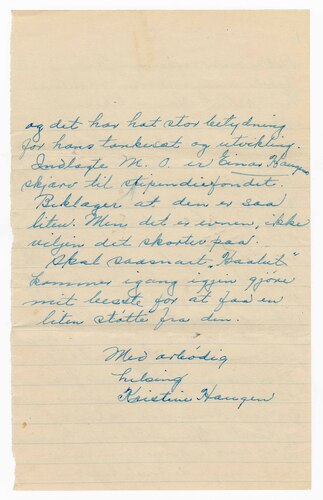 og det har hat stor betydning
for hans tankesæt og utvikling.
Indlagte M. O. er Einar Haugens
skjærv til stipendiefondet.
Beklager at den er saa
liten. Men det er evnen, ikke
viljen det skorter paa.
Skal saasnart
kommer igang igjen gjøre
mit beste for at faa en
liten støtte fra den.
Med ærbødig
hilsing
Kristine Haugen